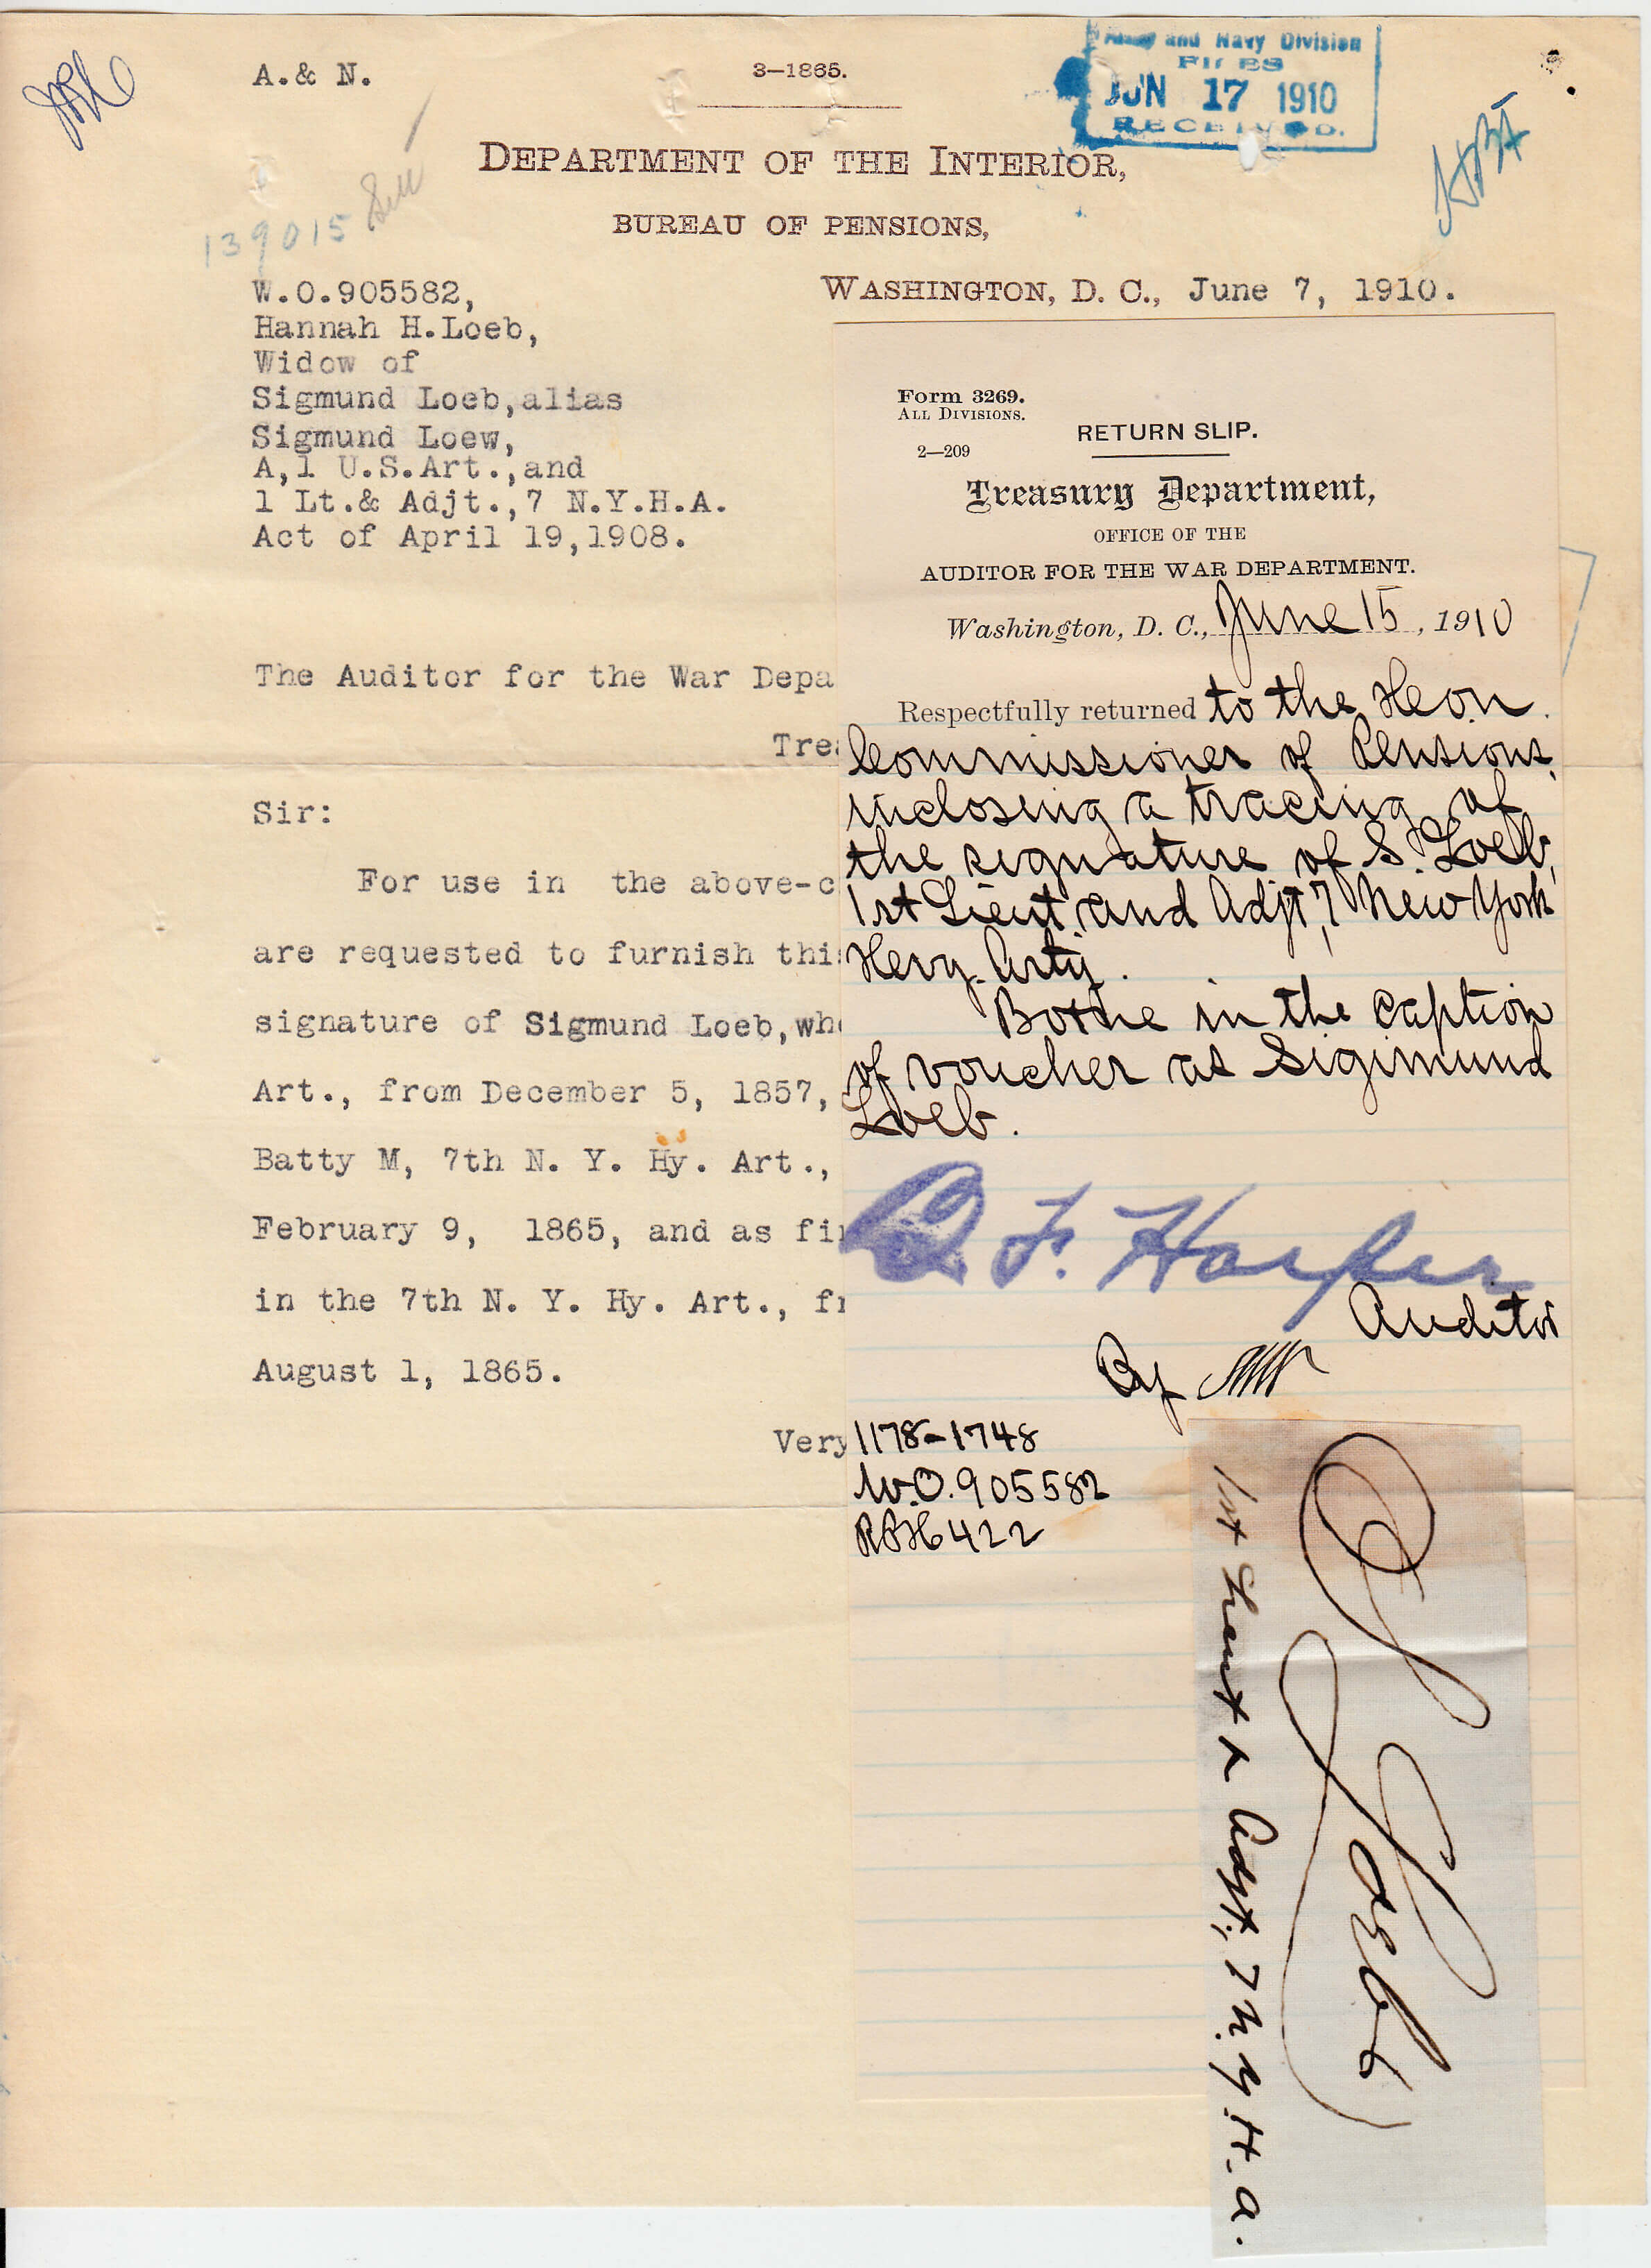 A.& N.
3—1865.
Army and Navy Division
FILES
JUN 17 1910
RECEIVED.
DEPARTMENT OF THE INTERIOR,
BUREAU OF PENSIONS,
139015
WASHINGTON, D. C., June 7, 1910.
W.O.905582,
Hannah H.Loeb,
Widow of
Sigmund Loeb,alias
Sigmund Loew,
A,1 U.S.Art.,and
1 Lt.& Adjt.,7 N.Y.H.A.
Act of April 19,1908.
The Auditor for the War Depa
Trea
Sir:
For use in the above-c
are requested to furnish this
signature of Sigmund Loeb,who
Art., from December 5, 1857,
Batty M, 7th N. Y. Hy. Art.,
February 9, 1865, and as fir
in the 7th N. Y. Hy. Art., fr
August 1, 1865.
Very
Form 3269.
ALL DIVISIONS.
2—209
RETURN SLIP.
Treasury Department,
OFFICE OF THE
AUDITOR FOR THE WAR DEPARTMENT.
Washington, D. C., June 15, 1910
Respectfully returned to the Hon.
Commissioner of Pensions,
inclosing a tracing of
the signature of S. Loeb,
1st Lieut. and Adjt, 7 New York
Hevy. Arty.
Borne in the caption
of voucher as Sigimund
Loeb.
F. Harper
Auditor
By
1178-1748
W.O. 905582
422
S Loeb
1st Lieut & Adjt, 7 N. Y. H. A.